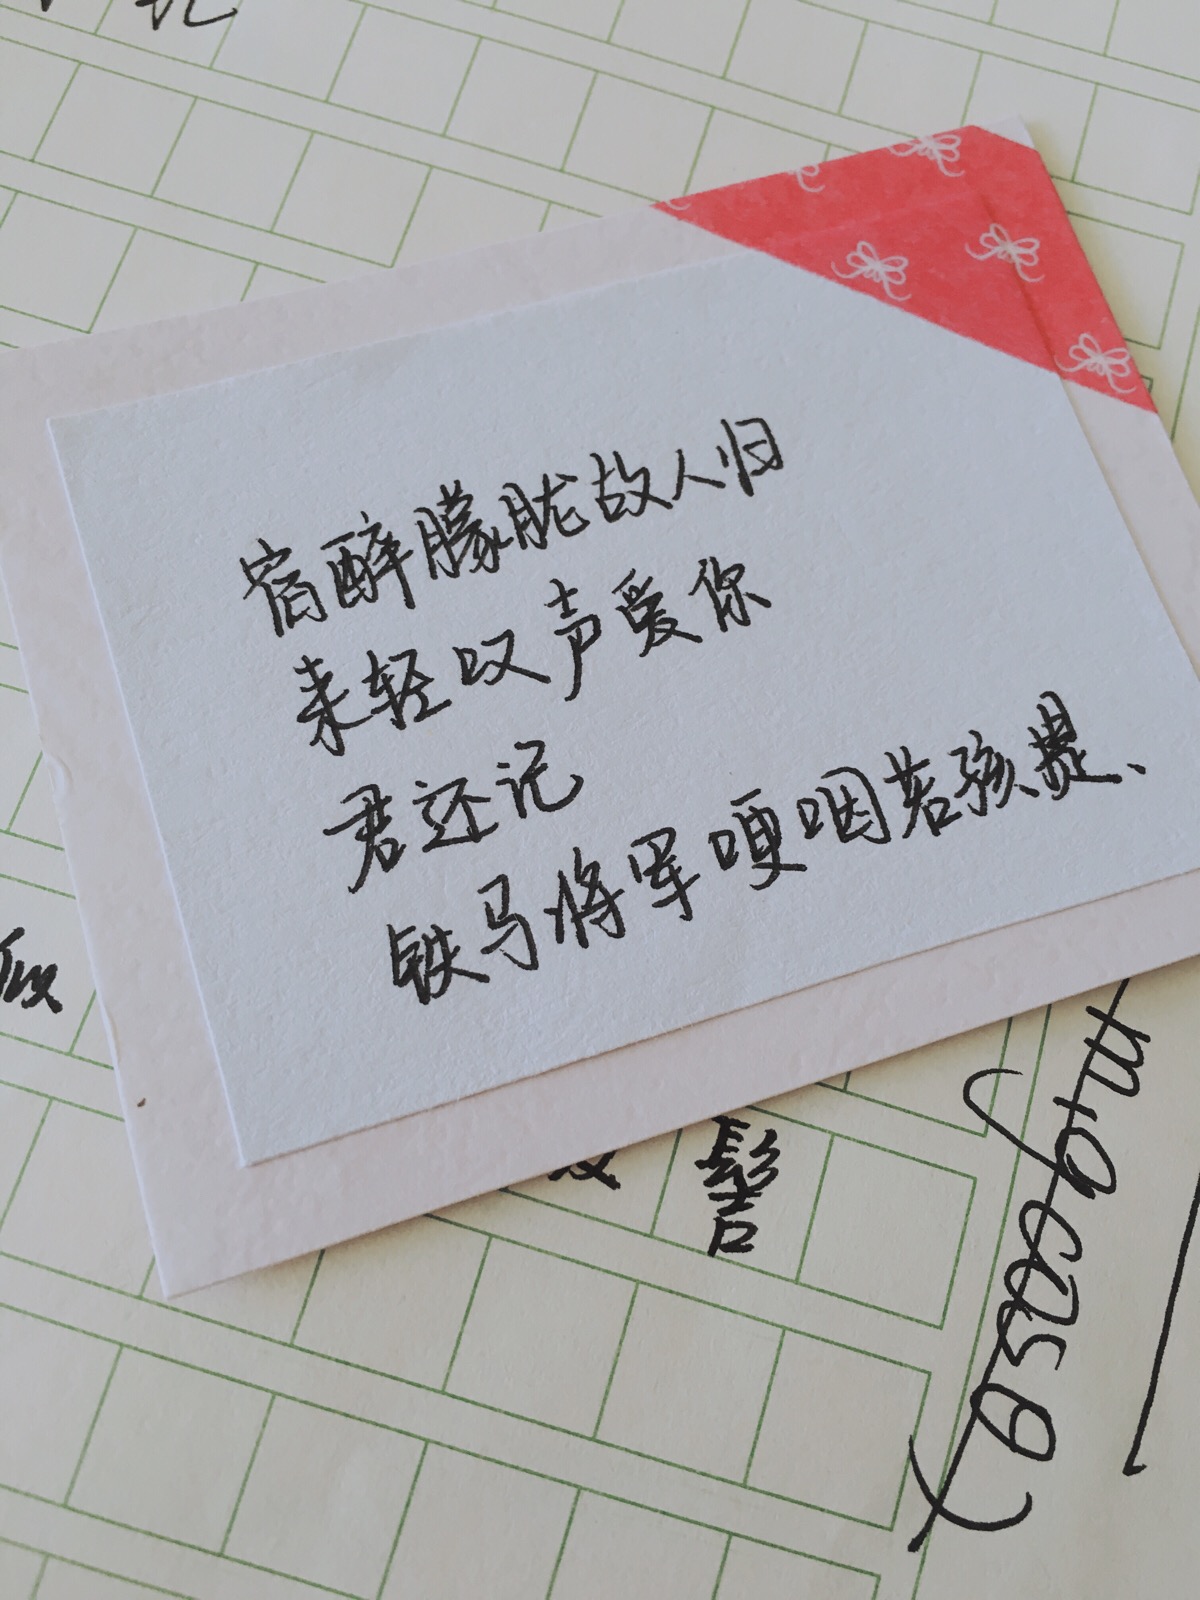 宿醉朦胧故人归
来轻叹声爱你
君还记
铁马将军哽咽若孩提、
髻
migcasa)